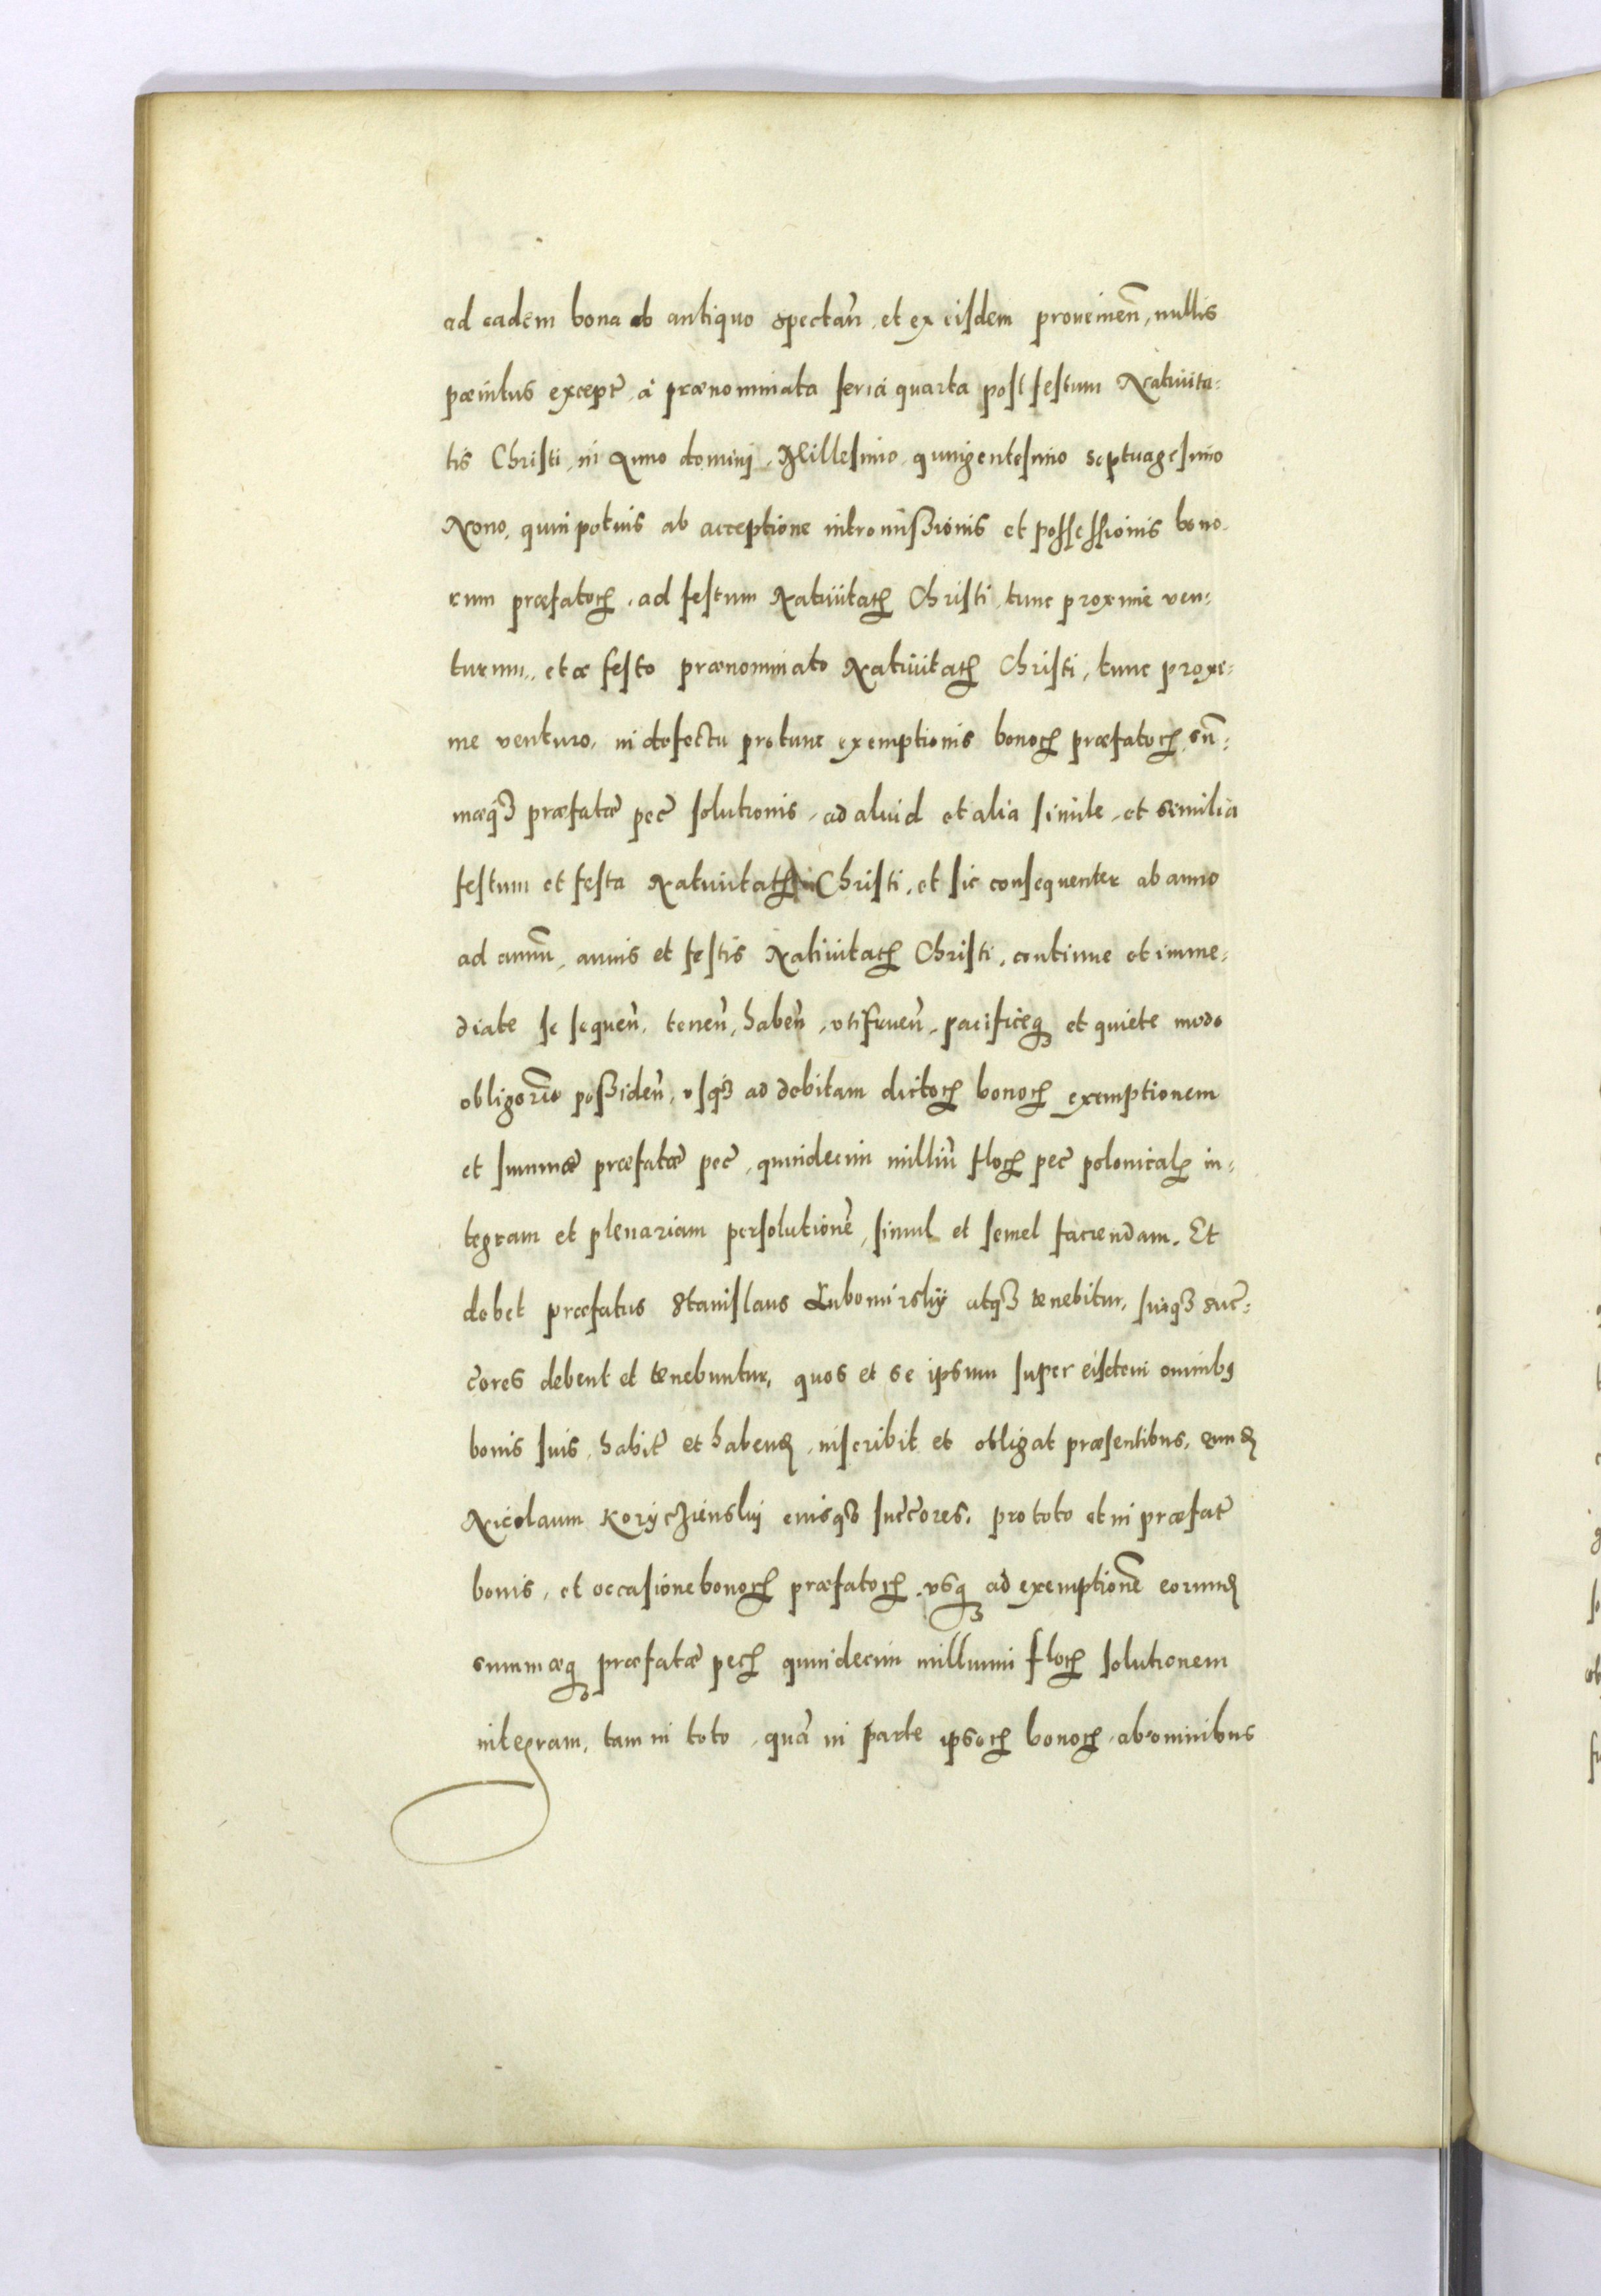 ad eadem bona ab antiquo spectan̄, et ex eisdem prouenien̄, nullis
pænitus except̄, à prænominata feria quarta post festum Natiuita=
tis Christi, in Anno domini, Millesimo, quingentesimo septuagesimo
Nono, quin potius ab acceptione intromissionis et possessionis bono=
rum præfatorꝝ, ad festum Natiuitatꝭ Christi, tunc proxime ven=
turum, et a festo prænominato Natiuitatꝭ Christi, tunc proxi=
me venturo, in defectu protunc exemptionis bonorꝝ præfatorꝝ, sum̄=
mæqꝫ præfatæ pec̄ solutionis, ad aliud et alia simile, et similia
festum et festa Natiuitatꝭ Christi, et sic consequenter ab anno
ad annū, annis et festis Natiuitatꝭ Christi, continue et imme=
diate se sequen̄, tenen̄, haben̄, vtifruen̄, pacificeqꝫ et quiete modo
obligōrio possiden̄, vsqꝫ ad debitam dictorꝝ bonorꝝ exemptionem
et summæ præfatæ pec̄, quindecim milliū florꝝ pec̄ polonicalꝭ in=
tegram et plenariam persolutionē, simul et semel faciendam. Et
debet præfatus Stanislaus Lubomirskÿ atqꝫ tenebitur, suiqꝫ suc̄=
c̄ores debent et tenebuntur, quos et se ipsum super eisdem omnibꝰ
bonis suis, habit̄ et habenꝭ, inscribit et obligat præsentibus, eunꝭ
Nicolaum Koryczienskij eiusqꝫ succ̄ores, pro toto et in præfat̄
bonis, et occasione bonorꝝ præfatorꝝ, vsqꝫ ad exemptionē eorunꝭ
summæqꝫ præfatæ pecꝭ quindecim millium florꝝ solutionem
integram, tam in toto, quā in parte ipsorꝝ bonorꝝ, ab omnibus